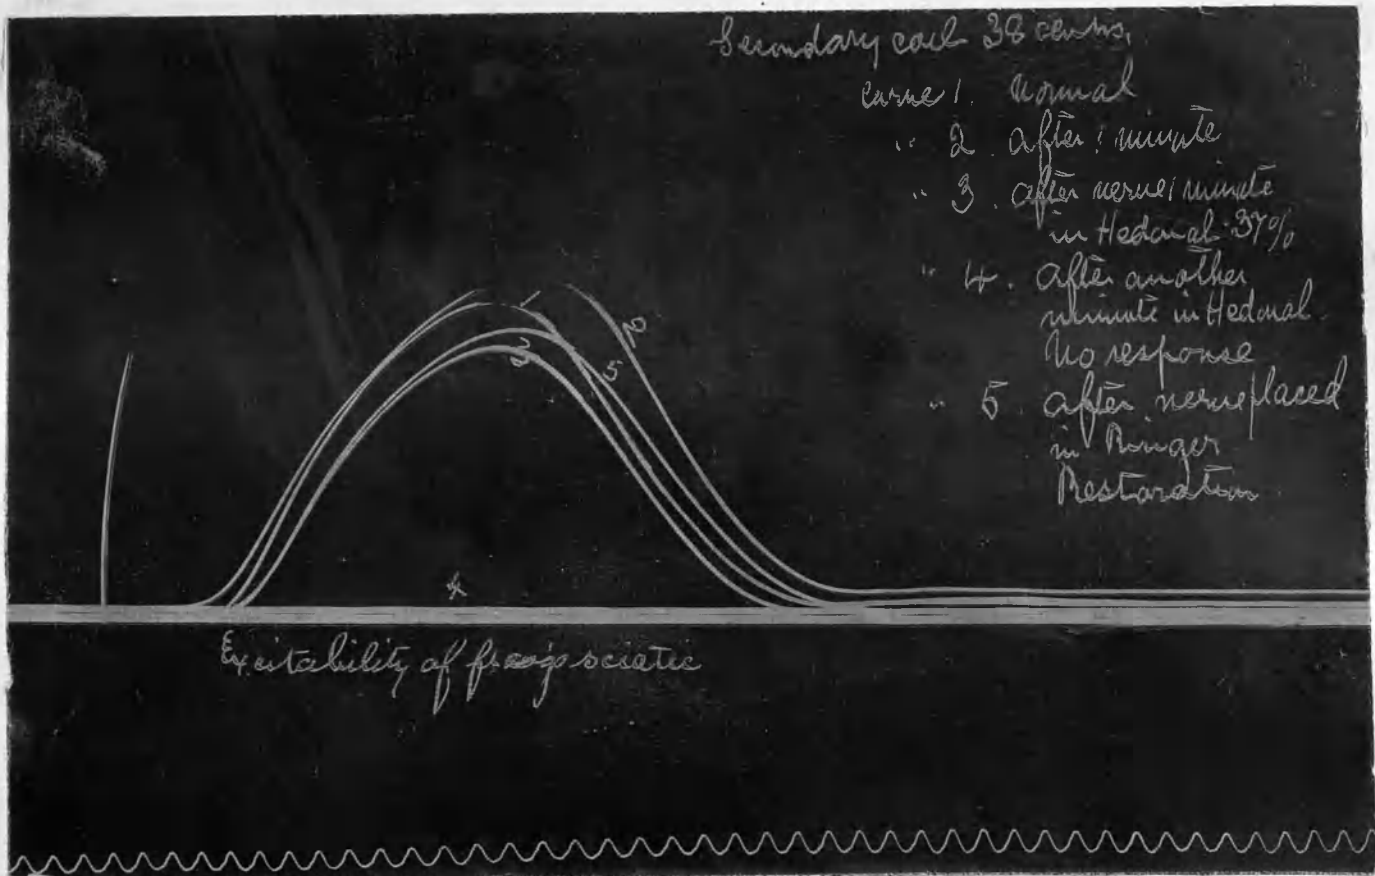 Secondary coil 38 centms.
Curve 1. Normal
" 2. After 1 minute
" 3. after nerve 1 minute
in Hedonal .37%
" 4. After another
minute in Hedonal.
No response
" 5. After nerve placed
in Ringer
Restoration
2
5
3
4
Excitability of frog's sciatic